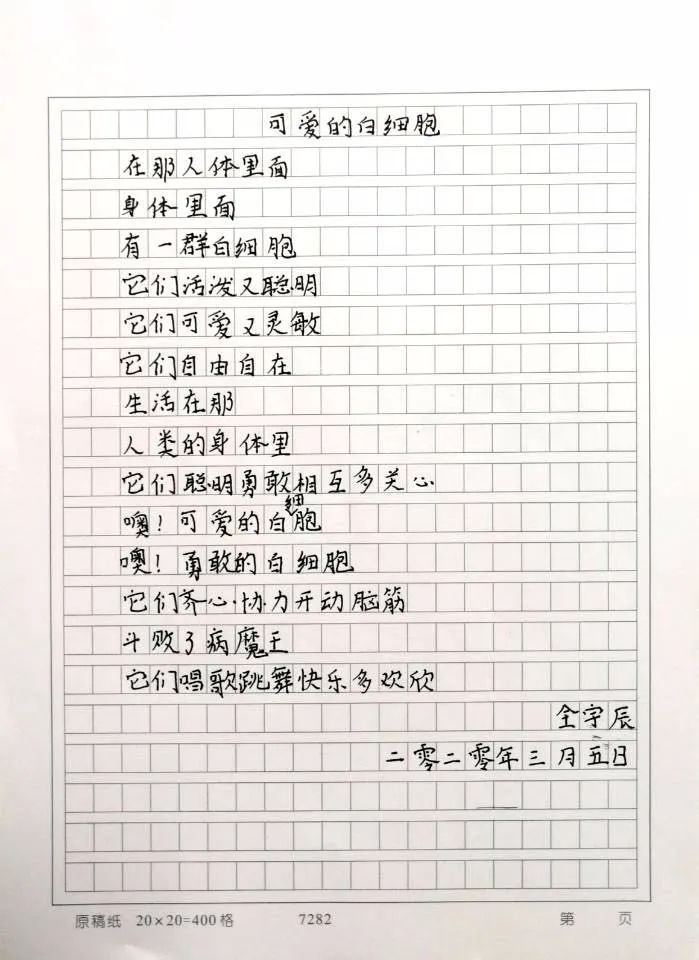 可爱的白细胞
在那人体里面
身体里面
有一群白细胞
它们活泼又聪明
它们可爱又灵敏
它们自由自在
生活在那
人类的身体里
它们聪明勇敢相互多关心
噢！可爱的白细胞
噢！勇敢的白细胞
它们齐心协力开动脑筋
斗败了病魔王
它们唱歌跳舞快乐多欢欣
全宇辰
二零二零年三月五日
原稿纸 20×20=400格 7282 第 页